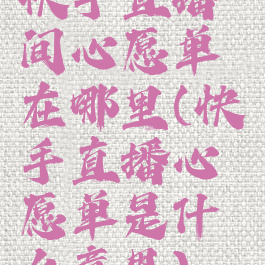 快手直播
间心愿单
在哪里(快
手直播心
愿单是什
么意思)